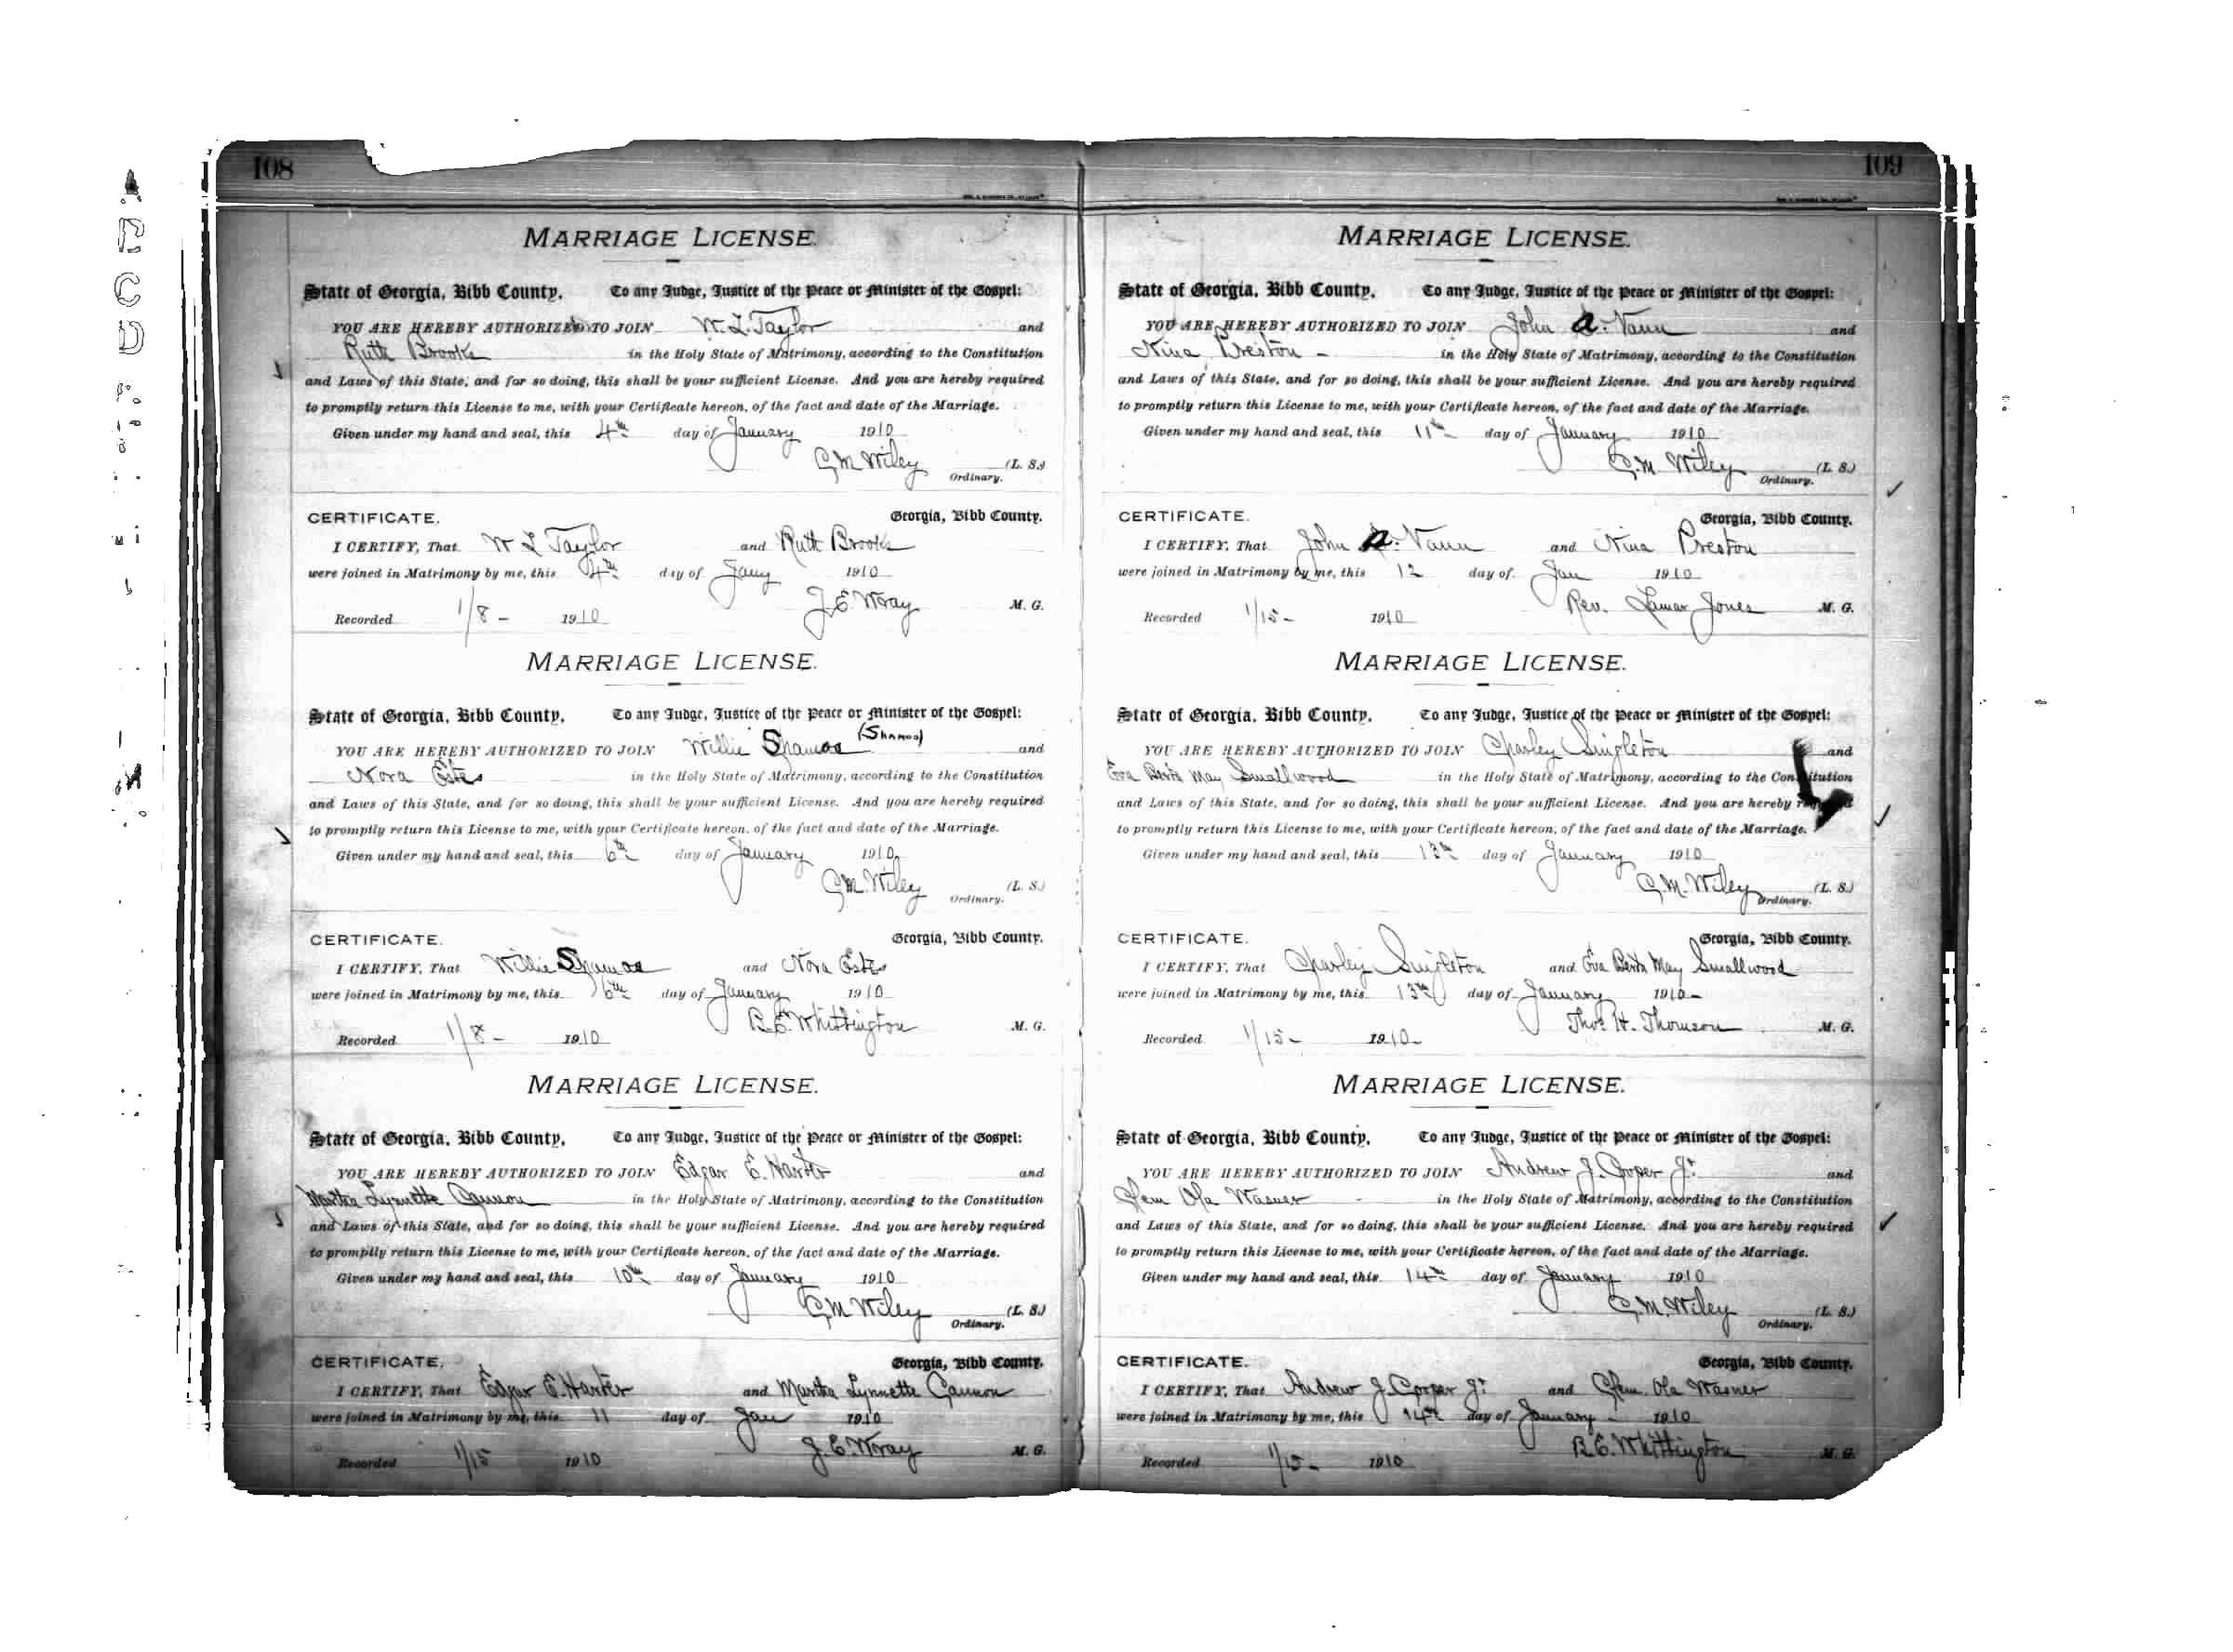 108
MARRIAGE LICENSE.
State of Georgia, Bibb County. To any Judge, Justice of the Peace or Minister of the Gospel:
YOU ARE HEREBY AUTHORIZED TO JOIN W. L. Taylor and
Ruth Brooks in the Holy State of Matrimony, according to the Constitution
and Laws of this State, and for so doing, this shall be your sufficient License. And you are hereby required
to promptly return this License to me, with your Certificate hereon, of the fact and date of the Marriage.
Given under my hand and seal, this 4th day of January 1910
C M Wiley (L. S.)
Ordinary.
CERTIFICATE. Georgia, Bibb County.
I CERTIFY, That W L Taylor and Ruth Brooks
were joined in Matrimony by me, this 4th day of Jany 1910
Recorded 1/8 - 1910 J. E. Wray M. G.
MARRIAGE LICENSE.
State of Georgia, Bibb County. To any Judge, Justice of the Peace or Minister of the Gospel:
(Shamos)
YOU ARE HEREBY AUTHORIZED TO JOIN Willie Shamos and
Nora Estes in the Holy State of Matrimony, according to the Constitution
and Laws of this State, and for so doing, this shall be your sufficient License. And you are hereby required
to promptly return this License to me, with your Certificate hereon, of the fact and date of the Marriage.
Given under my hand and seal, this 6th day of January 1910
C M. Wiley (L. S.)
Ordinary.
CERTIFICATE. Georgia, Bibb County.
I CERTIFY, That Willie Shamos and Nora Estes
were joined in Matrimony by me, this 6th day of January 1910
Recorded 1/8 - 1910 R. E. Whittington M. G.
MARRIAGE LICENSE.
State of Georgia, Bibb County. To any Judge, Justice of the Peace or Minister of the Gospel:
YOU ARE HEREBY AUTHORIZED TO JOIN Edgar E. Harter and
Martha Lynnette Cannon in the Holy State of Matrimony, according to the Constitution
and Laws of this State, and for so doing, this shall be your sufficient License. And you are hereby required
to promptly return this License to me, with your Certificate hereon, of the fact and date of the Marriage.
Given under my hand and seal, this 10th day of January 1910
C M Wiley (L. S.)
Ordinary.
CERTIFICATE. Georgia, Bibb County.
I CERTIFY, That Edgar E. Harter and Martha Lynnette Cannon
were joined in Matrimony by me, this 11 day of Jan 1910
Recorded 1/15 1910 J. E. Wray M. G.
109
MARRIAGE LICENSE.
State of Georgia, Bibb County. To any Judge, Justice of the Peace or Minister of the Gospel:
YOU ARE HEREBY AUTHORIZED TO JOIN John A. Vann and
Nina Preston - in the Holy State of Matrimony, according to the Constitution
and Laws of this State, and for so doing, this shall be your sufficient License. And you are hereby required
to promptly return this License to me, with your Certificate hereon, of the fact and date of the Marriage.
Given under my hand and seal, this 11th day of January 1910
C. M. Wiley (L. S.)
Ordinary.
CERTIFICATE. Georgia, Bibb County.
I CERTIFY, That John A. Vann and Nina Preston
were joined in Matrimony by me, this 12 day of Jan 1910
Recorded 1/15 - 1910 Rev. Lamar Jones M. G.
MARRIAGE LICENSE.
State of Georgia, Bibb County. To any Judge, Justice of the Peace or Minister of the Gospel:
YOU ARE HEREBY AUTHORIZED TO JOIN Charley Singleton and
Eva May Smallwood in the Holy State of Matrimony, according to the Constitution
and Laws of this State, and for so doing, this shall be your sufficient License. And you are hereby required
to promptly return this License to me, with your Certificate hereon, of the fact and date of the Marriage.
Given under my hand and seal, this 13th day of January 1910
C. M. Wiley (L. S.)
Ordinary.
CERTIFICATE. Georgia, Bibb County.
I CERTIFY, That Charley Singleton and Eva May Smallwood
were joined in Matrimony by me, this 13th day of January 1910
Recorded 1/15 - 1910 Thos. H. Thomson M. G.
MARRIAGE LICENSE.
State of Georgia, Bibb County. To any Judge, Justice of the Peace or Minister of the Gospel:
YOU ARE HEREBY AUTHORIZED TO JOIN Andrew J. Cooper Jr. and
Clem Ola Wasner in the Holy State of Matrimony, according to the Constitution
and Laws of this State, and for so doing, this shall be your sufficient License. And you are hereby required
to promptly return this License to me, with your Certificate hereon, of the fact and date of the Marriage.
Given under my hand and seal, this 14th day of January 1910
C. M. Wiley (L. S.)
Ordinary.
CERTIFICATE. Georgia, Bibb County.
I CERTIFY, That Andrew J. Cooper Jr. and Clem Ola Wasner
were joined in Matrimony by me, this 14th day of January 1910
Recorded 1/15 - 1910 R. E. Whittington M. G.